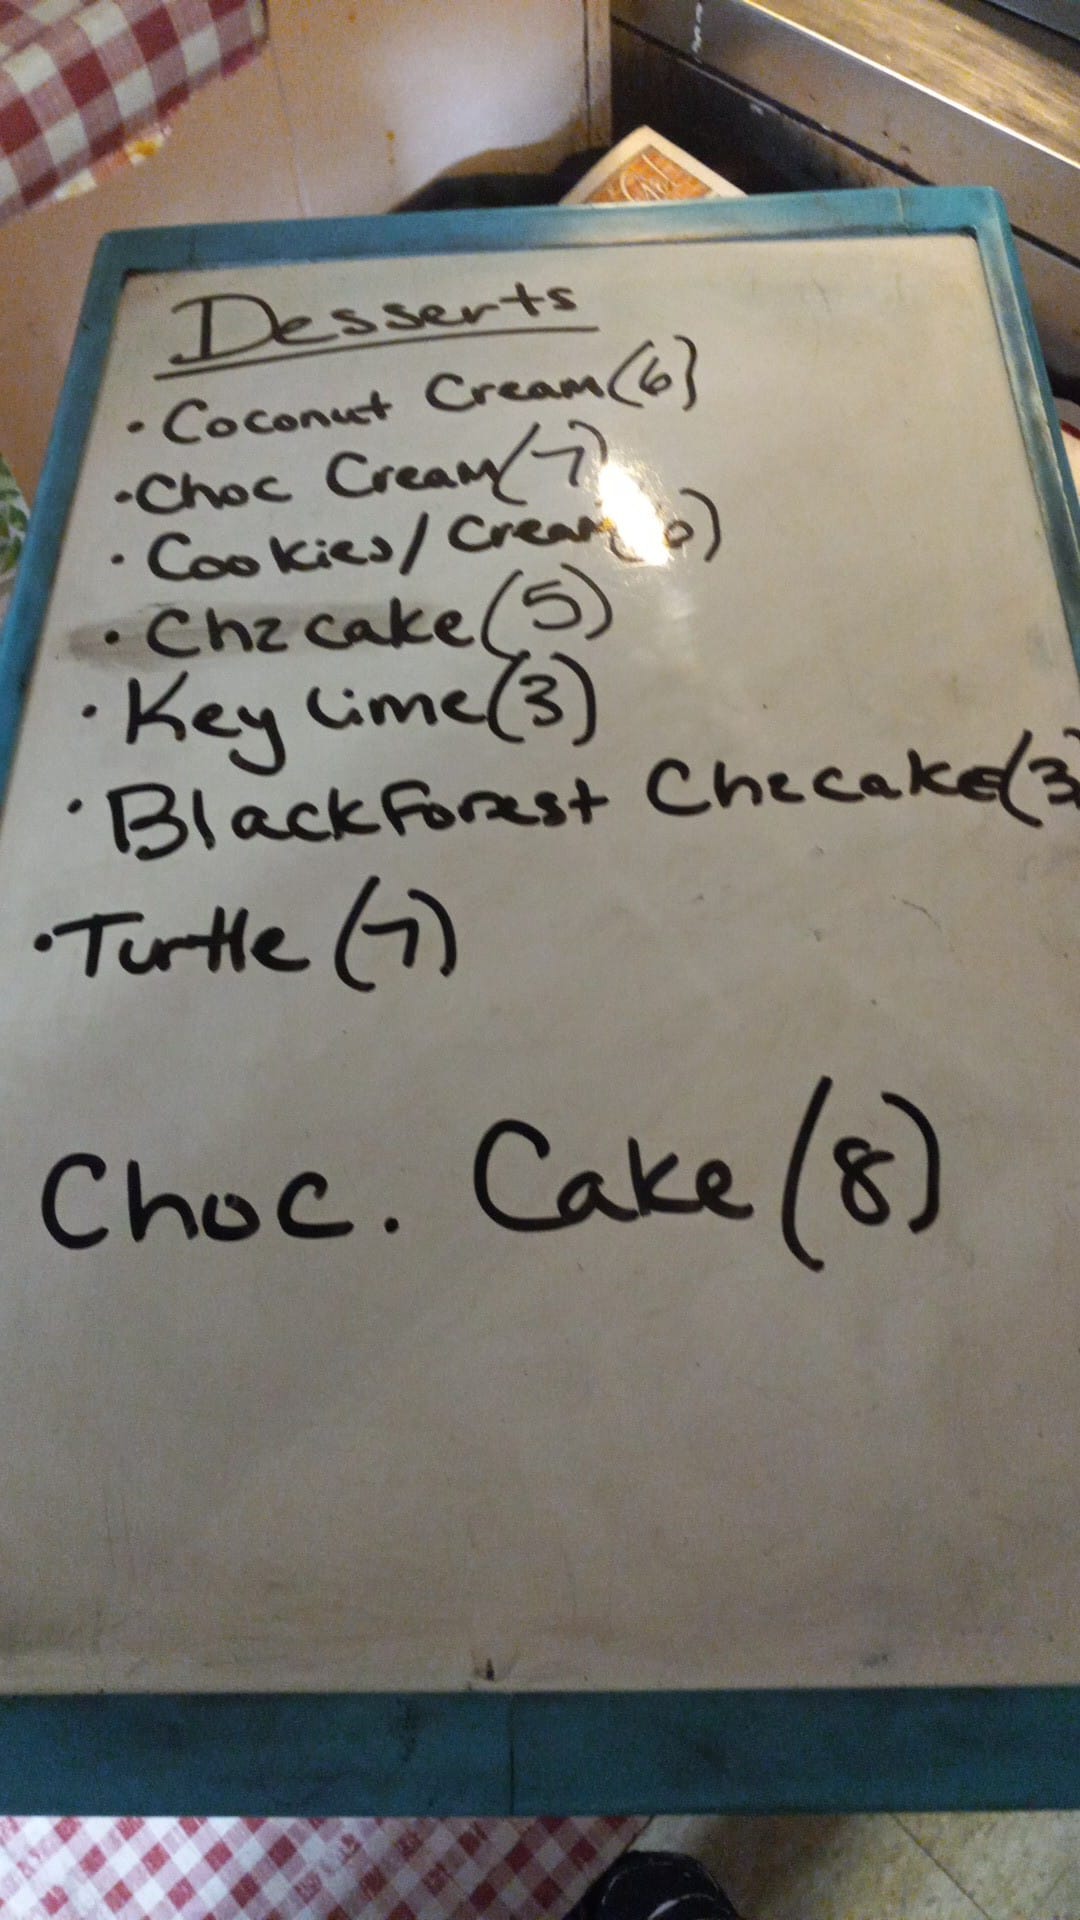 Desserts
• Coconut Cream (6)
• Choc Cream (7)
• Cookies/Cream
• Chzcake (5)
• Key Lime (3)
• Blackforest Chzcake (3)
• Turtle (7)
Choc. Cake (8)